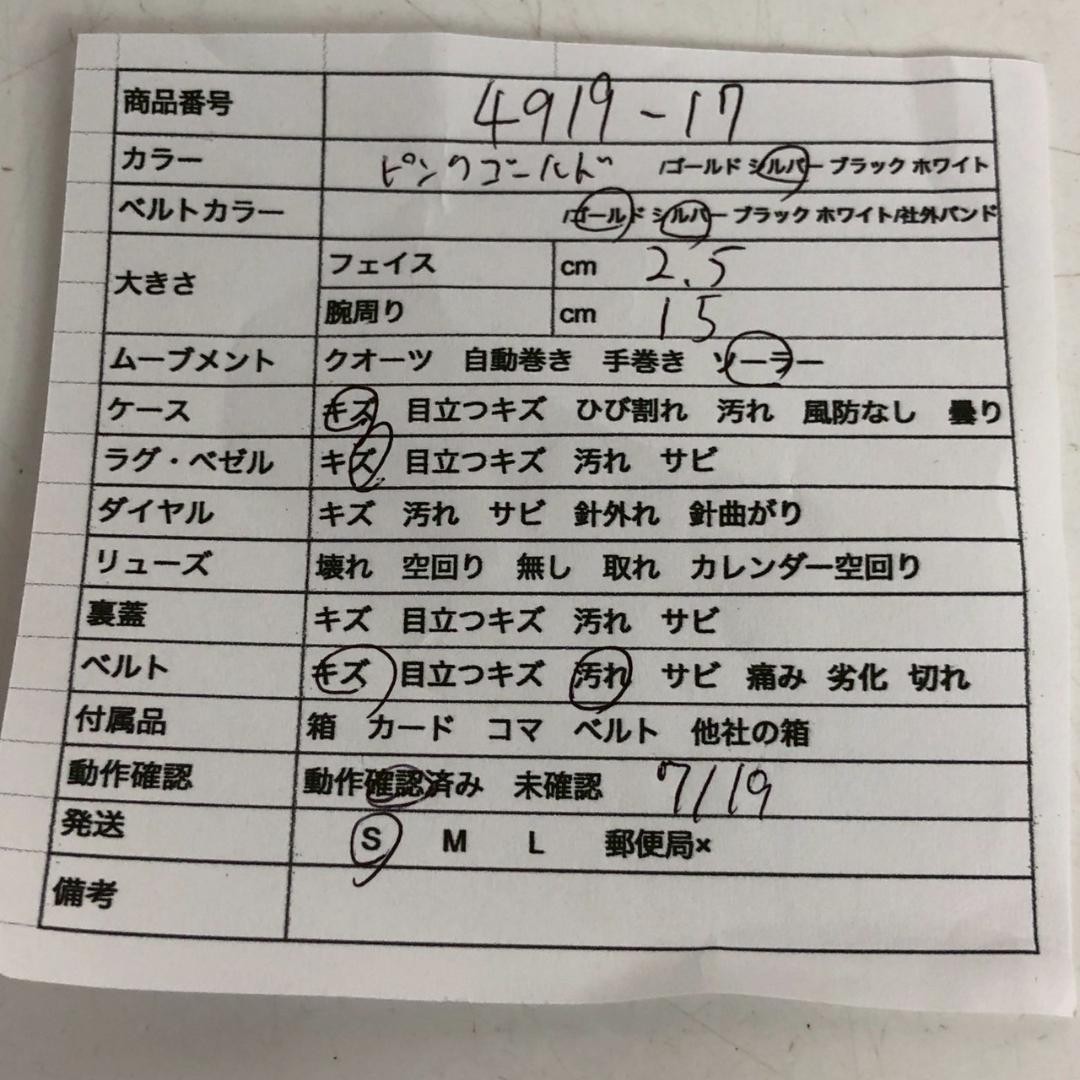 商品番号 4919-17
カラー ピンクゴールド /ゴールド シルバー ブラック ホワイト
ベルトカラー /ゴールド シルバー ブラック ホワイト/社外バンド
大きさ フェイス cm 2.5
腕周り cm 15
ムーブメント クオーツ 自動巻き 手巻き ソーラー
ケース キズ 目立つキズ ひび割れ 汚れ 風防なし 曇り
ラグ・ベゼル キズ 目立つキズ 汚れ サビ
ダイヤル キズ 汚れ サビ 針外れ 針曲がり
リューズ 壊れ 空回り 無し 取れ カレンダー空回り
裏蓋 キズ 目立つキズ 汚れ サビ
ベルト キズ 目立つキズ 汚れ サビ 痛み 劣化 切れ
付属品 箱 カード コマ ベルト 他社の箱
動作確認 動作確認済み 未確認 7/19
発送 S M L 郵便局×
備考